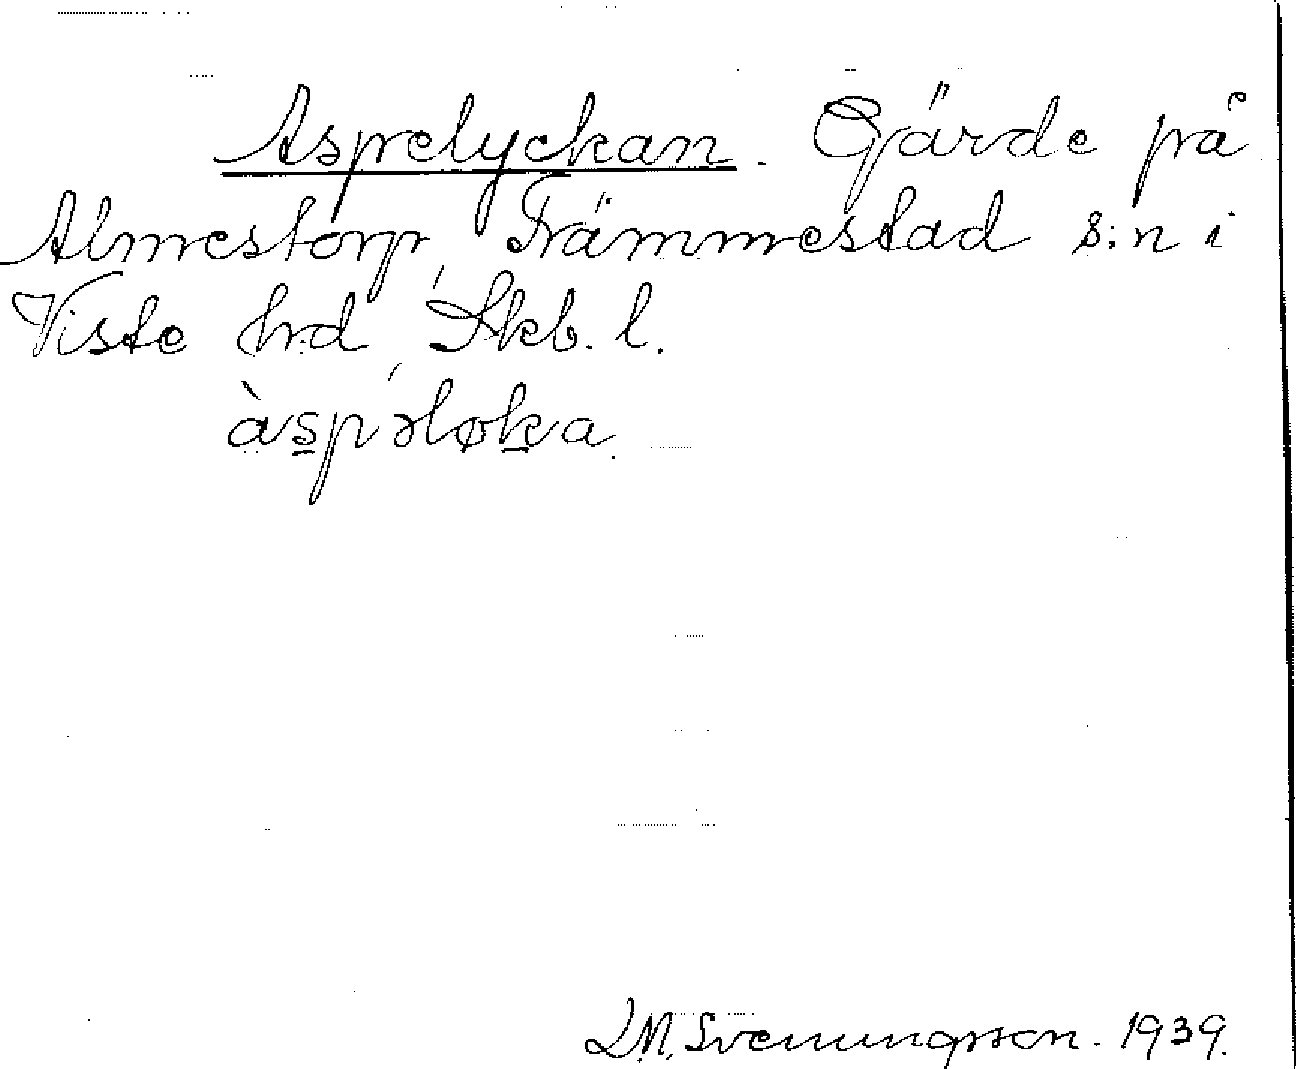 Aspelyckan. Gärde på
Almestorp, Främmestad s:n i
Viste hrd, Skb. l.
àspəløka.
L.M. Svenungsson. 1939.